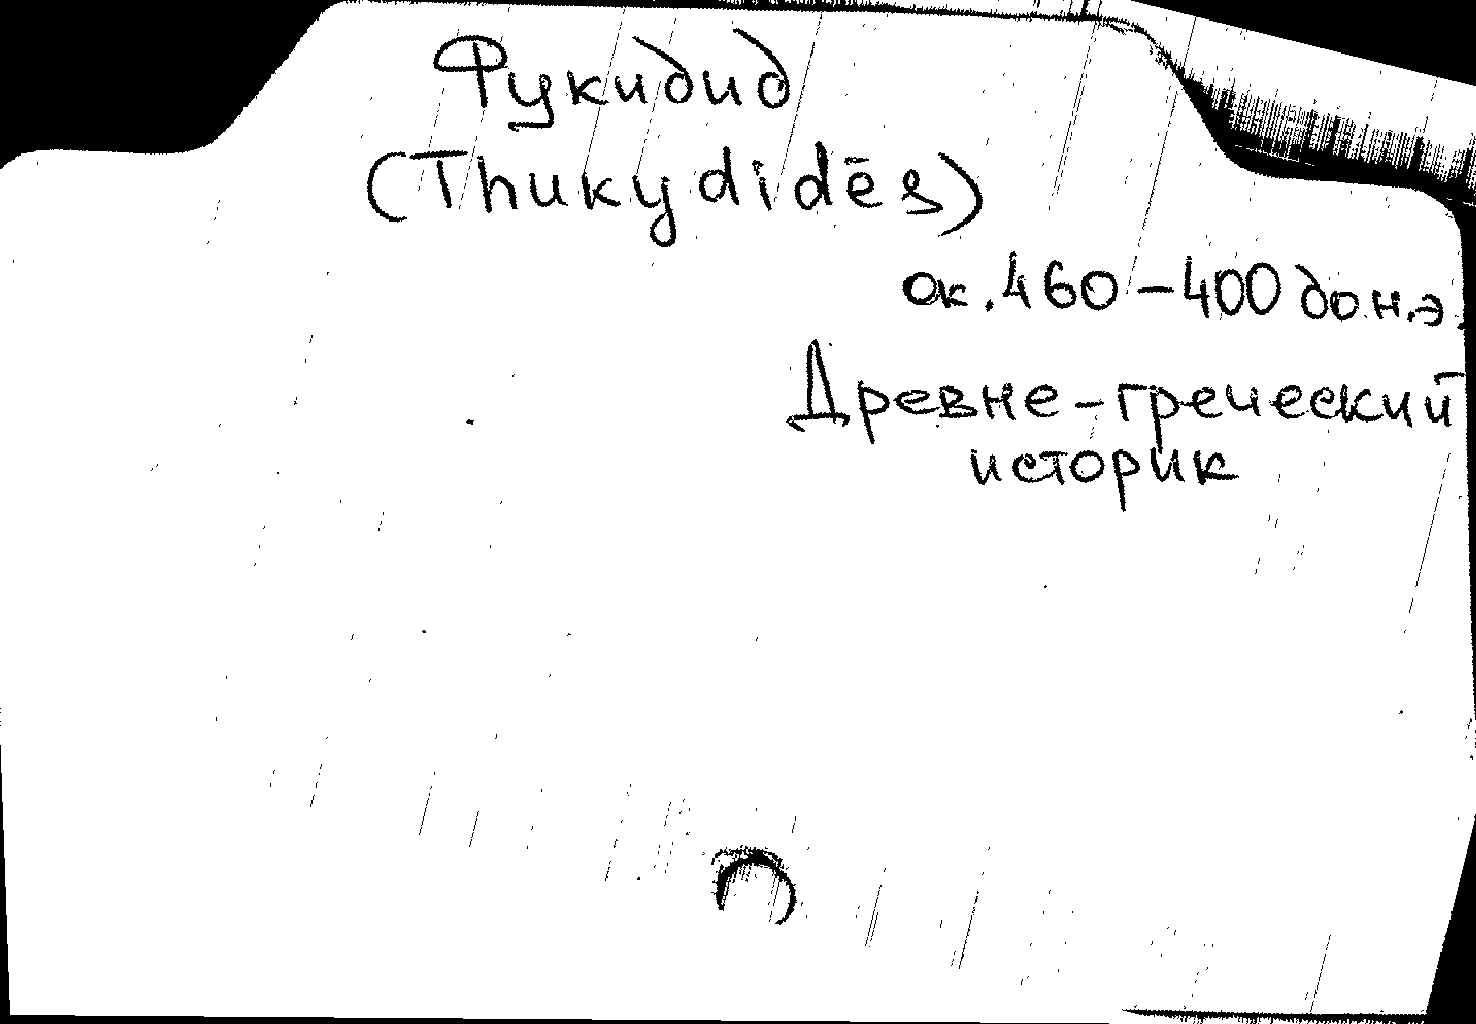 Фукидид
(Thukydidēs)
ок. 460 – 400 до н.э.
Древне-греческий
историк